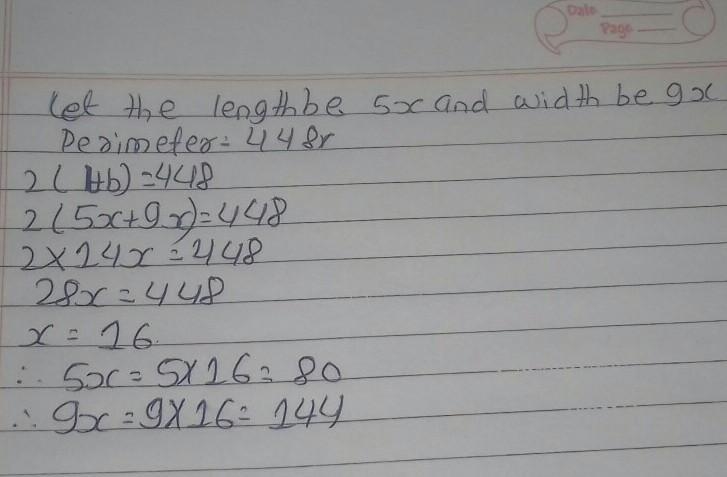 Date
Page
Let the length be 5x and width be 9x
Perimeter = 448r
2(l+b)=448
2(5x+9x)=448
2×14x=448
28x=448
x=16.
∴ 5x=5×16=80
∴ 9x=9×16=144